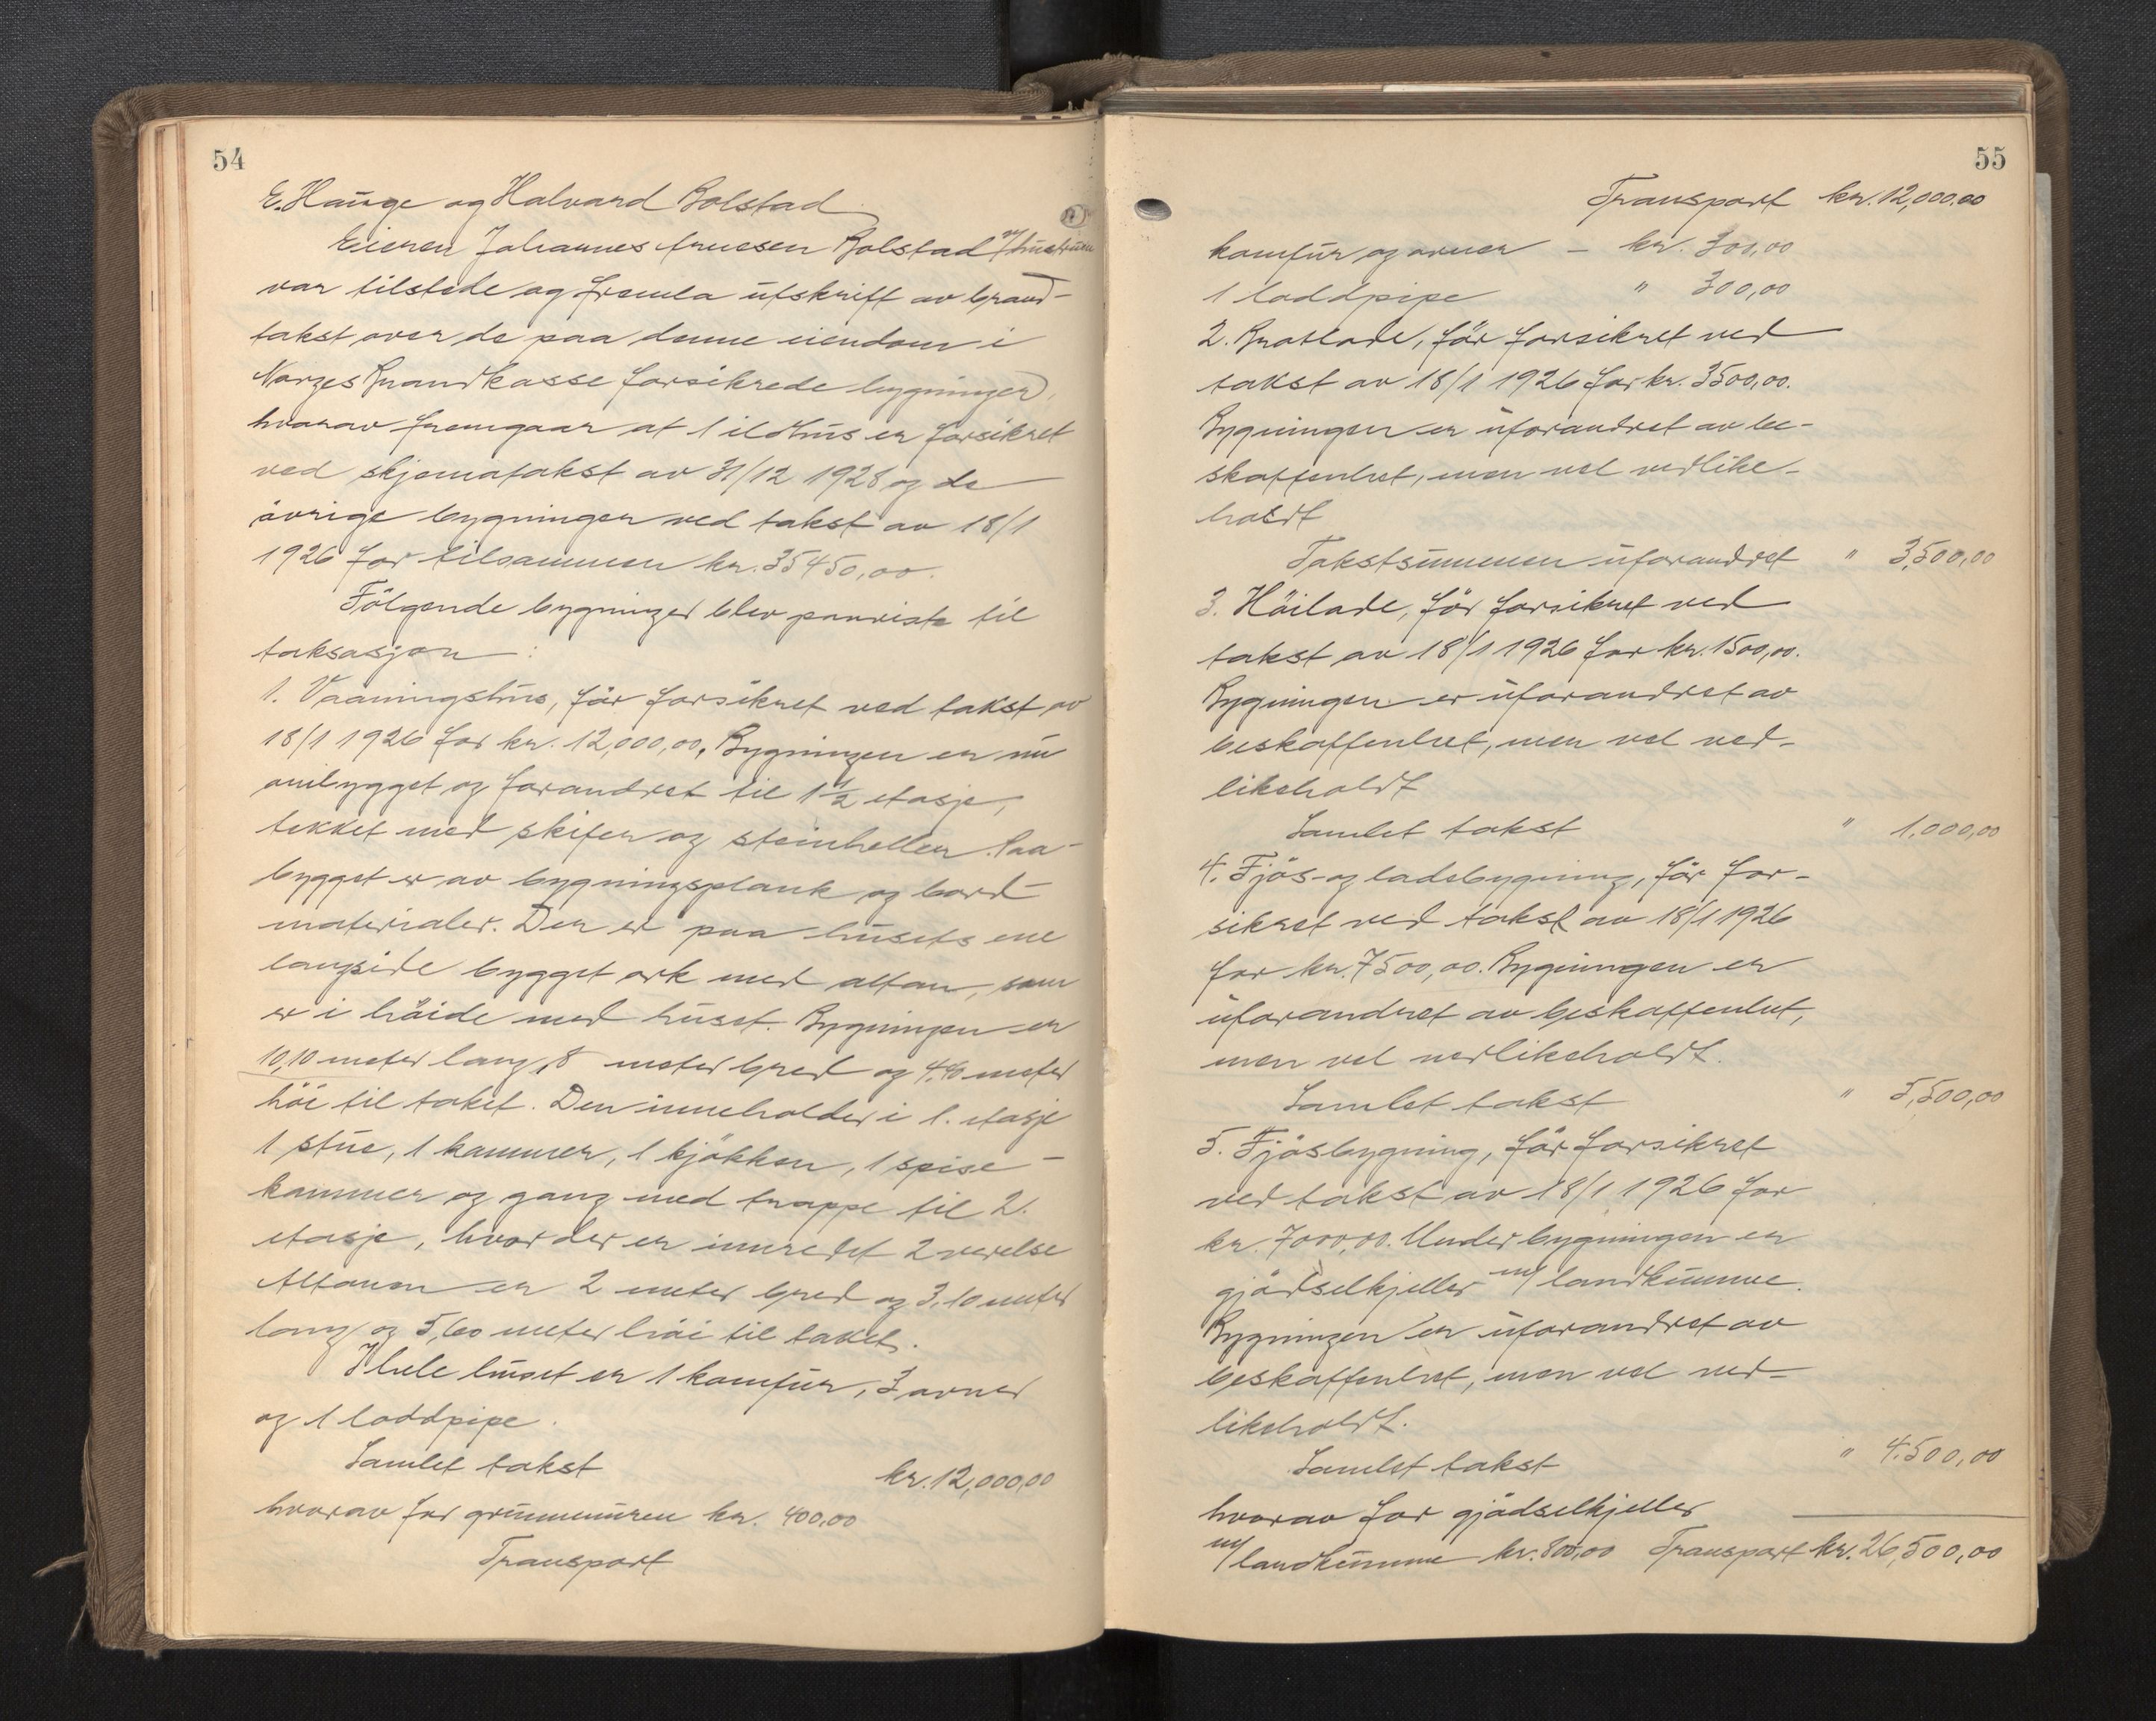 54
E. Hauge og Halvard Bolstad
Eieren Johannes Arnesen Bolstad m/hustru
var tilstede og fremla utskrift av brand-
takst over de paa denne eiendom i
Norges Brandkasse forsikrede bygninger,
hvorav fremgaar at 1 ildhus er forsikret
ved skjematakst av 31/12 1928 og de
övrige bygninger ved takst av 18/1
1926 for tilsammen kr. 35450,00.
Fölgende bygninger blev paaviste til
taksasjon:
1. Vaaningshus, för forsikret ved takst av
18/1 1926 for kr. 12,000,00. Bygningen er nu
ombygget og forandret til 1 1/2 etasje,
tekket med skifer og steinheller. Paa-
bygget er av bygningsplank og bord-
materialer. Der er paa husets ene
langside bygget ark med altan, som
er i höide med huset. Bygningen er
10,10 meter lang, 8 meter bred og 4,40 meter
höi til taket. Den inneholder i 1. etasje
1 stue, 1 kammer, 1 kjökken, 1 spise-
kammer og gang med trappe til 2.
etasje, hvor der er innredet 2 verelse
Altanen er 2 meter bred og 3,10 meter
lang og 5,60 meter höi til taket.
I hele huset er 1 komfur, 3 ovner
og 1 loddpipe.
Samlet takst kr. 12,000,00
hvorav for grunnmuren kr. 400,00
Transport
55
Transport kr. 12,000.00
komfur og ovner - kr. 300,00
1 loddpipe " 300,00
2. Bratlade, för forsikret ved
takst av 18/1 1926 for kr. 3500,00.
Bygningen er uforandret av be-
skaffenhet, men vel vedlike-
holdt
Takstsummen uforandret " 3,500,00
3. Höilade, för forsikret ved
takst av 18/1 1926 for kr. 1500,00.
Bygningen er uforandret av
beskaffenhet, men vel ved-
likeholdt
Samlet takst " 1,000,00
4. Fjös- og ladebygning, för for-
sikret ved takst av 18/1 1926
for kr. 7500,00. Bygningen er
uforandret av beskaffenhet,
men vel vedlikeholdt.
Samlet takst " 5,500,00
5. Fjösbygning, för forsikret
ved takst av 18/1 1926 for
kr. 7000,00. Under bygningen er
gjödselkjeller m/ landkumme.
Bygningen er uforandret av
beskaffenhet, men vel ved-
likeholdt.
Samlet takst " 4.500,00
hvorav for gjödselkjeller
m/ landkumme kr. 800,00 Transport kr. 26,500,00